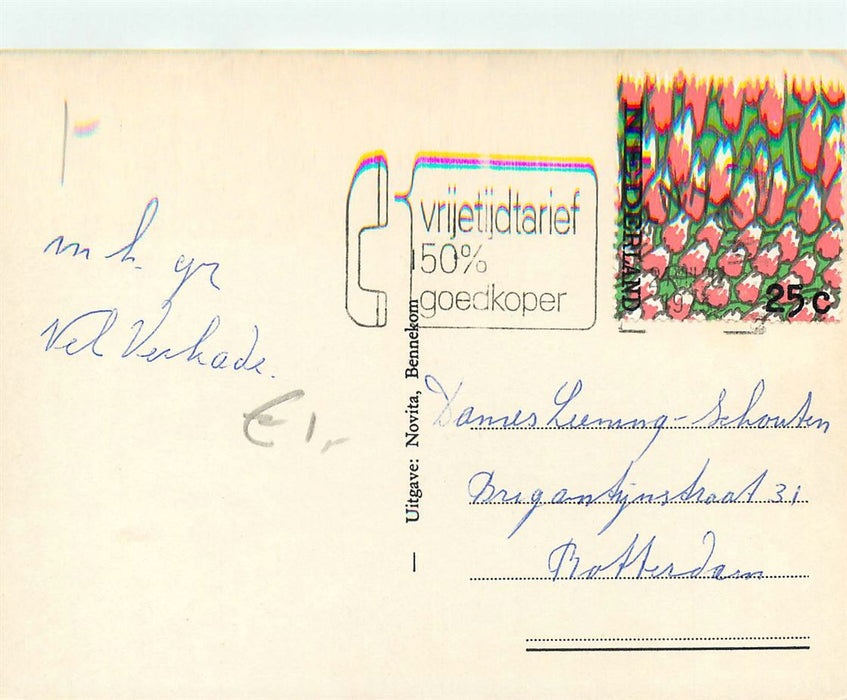 vrijetijdtarief
50%
goedkoper
NEDERLAND
25 c
m h. gr
Nel Verkade.
€ 1,-
Uitgave: Novita, Bennekom
Dames Leeming-Schouten
Brigantijnstraat 31
Rotterdam